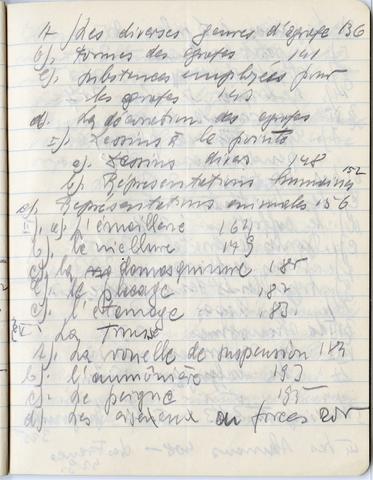 A). Les diverses genres d'agrafe 136
b). Formes des agrafes 141
c). substances employées pour
les agrafes 143
d). La décoration des agrafes
I). Dessins à la pointe
a). Dessins divers 148
b). Représentations humaines 152
c). Représentations animales 156
a). l'émaillerie 164
b). la niellure 179
c). La damasquinure 185
d). le placage 187
e). l'étamage 183
La Trousse
a). La rouelle de suspension 183
b). l'aumônière 193
c). Le peigne 195
d). Les ciseaux ou forces 201